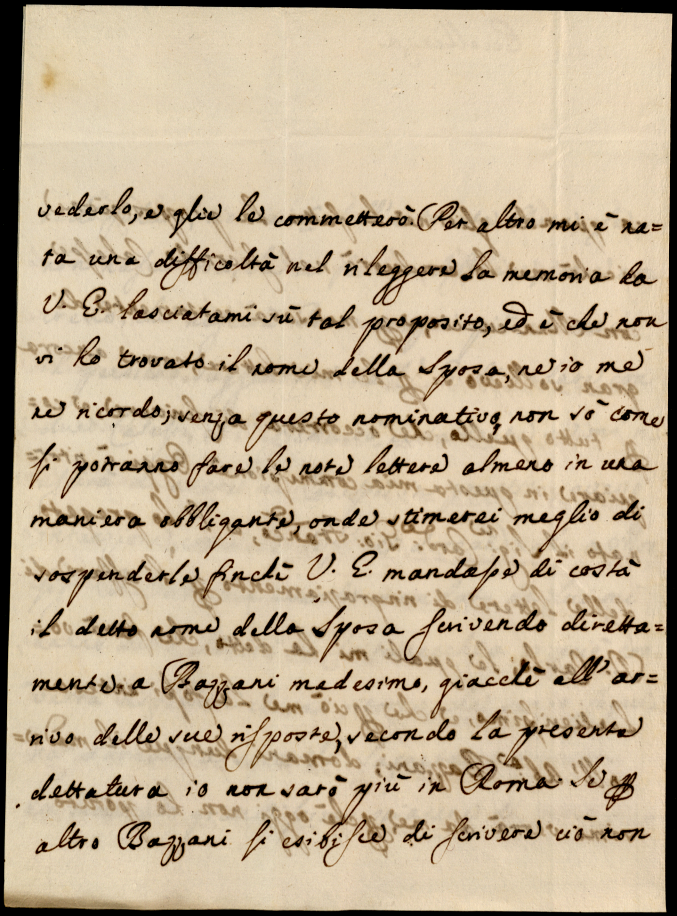 vederlo, e glie le commetterò. Per altro mi è na=
ta una difficoltà nel rileggere la memoria ha
V. E. lasciatami sù tal proposito, ed è che non
vi ho trovato il nome della Sposa, ne io me
ne ricordo; senza questo nominativo non sò come
si potranno fare le note lettere almeno in una
maniera obbligante, onde stimerei meglio di
sospenderle finchè V. E. mandasse di costà
il detto nome della Sposa scrivendo diretta=
mente a Bazzani medesimo, giacchè all' ar=
rivo delle sue risposte, secondo la presente
dettatura io non sarò più in Roma. Se ꝑ
altro Bazzani si esibisce di scrivere ciò non